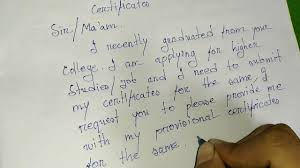 Certificates
Sir/Ma'am.
I recently graduated from your
College. I am applying for higher
Studies/job and I need to submit
my certificates for the same, I
request you to please provide me
with my provisional certificates
for the same.